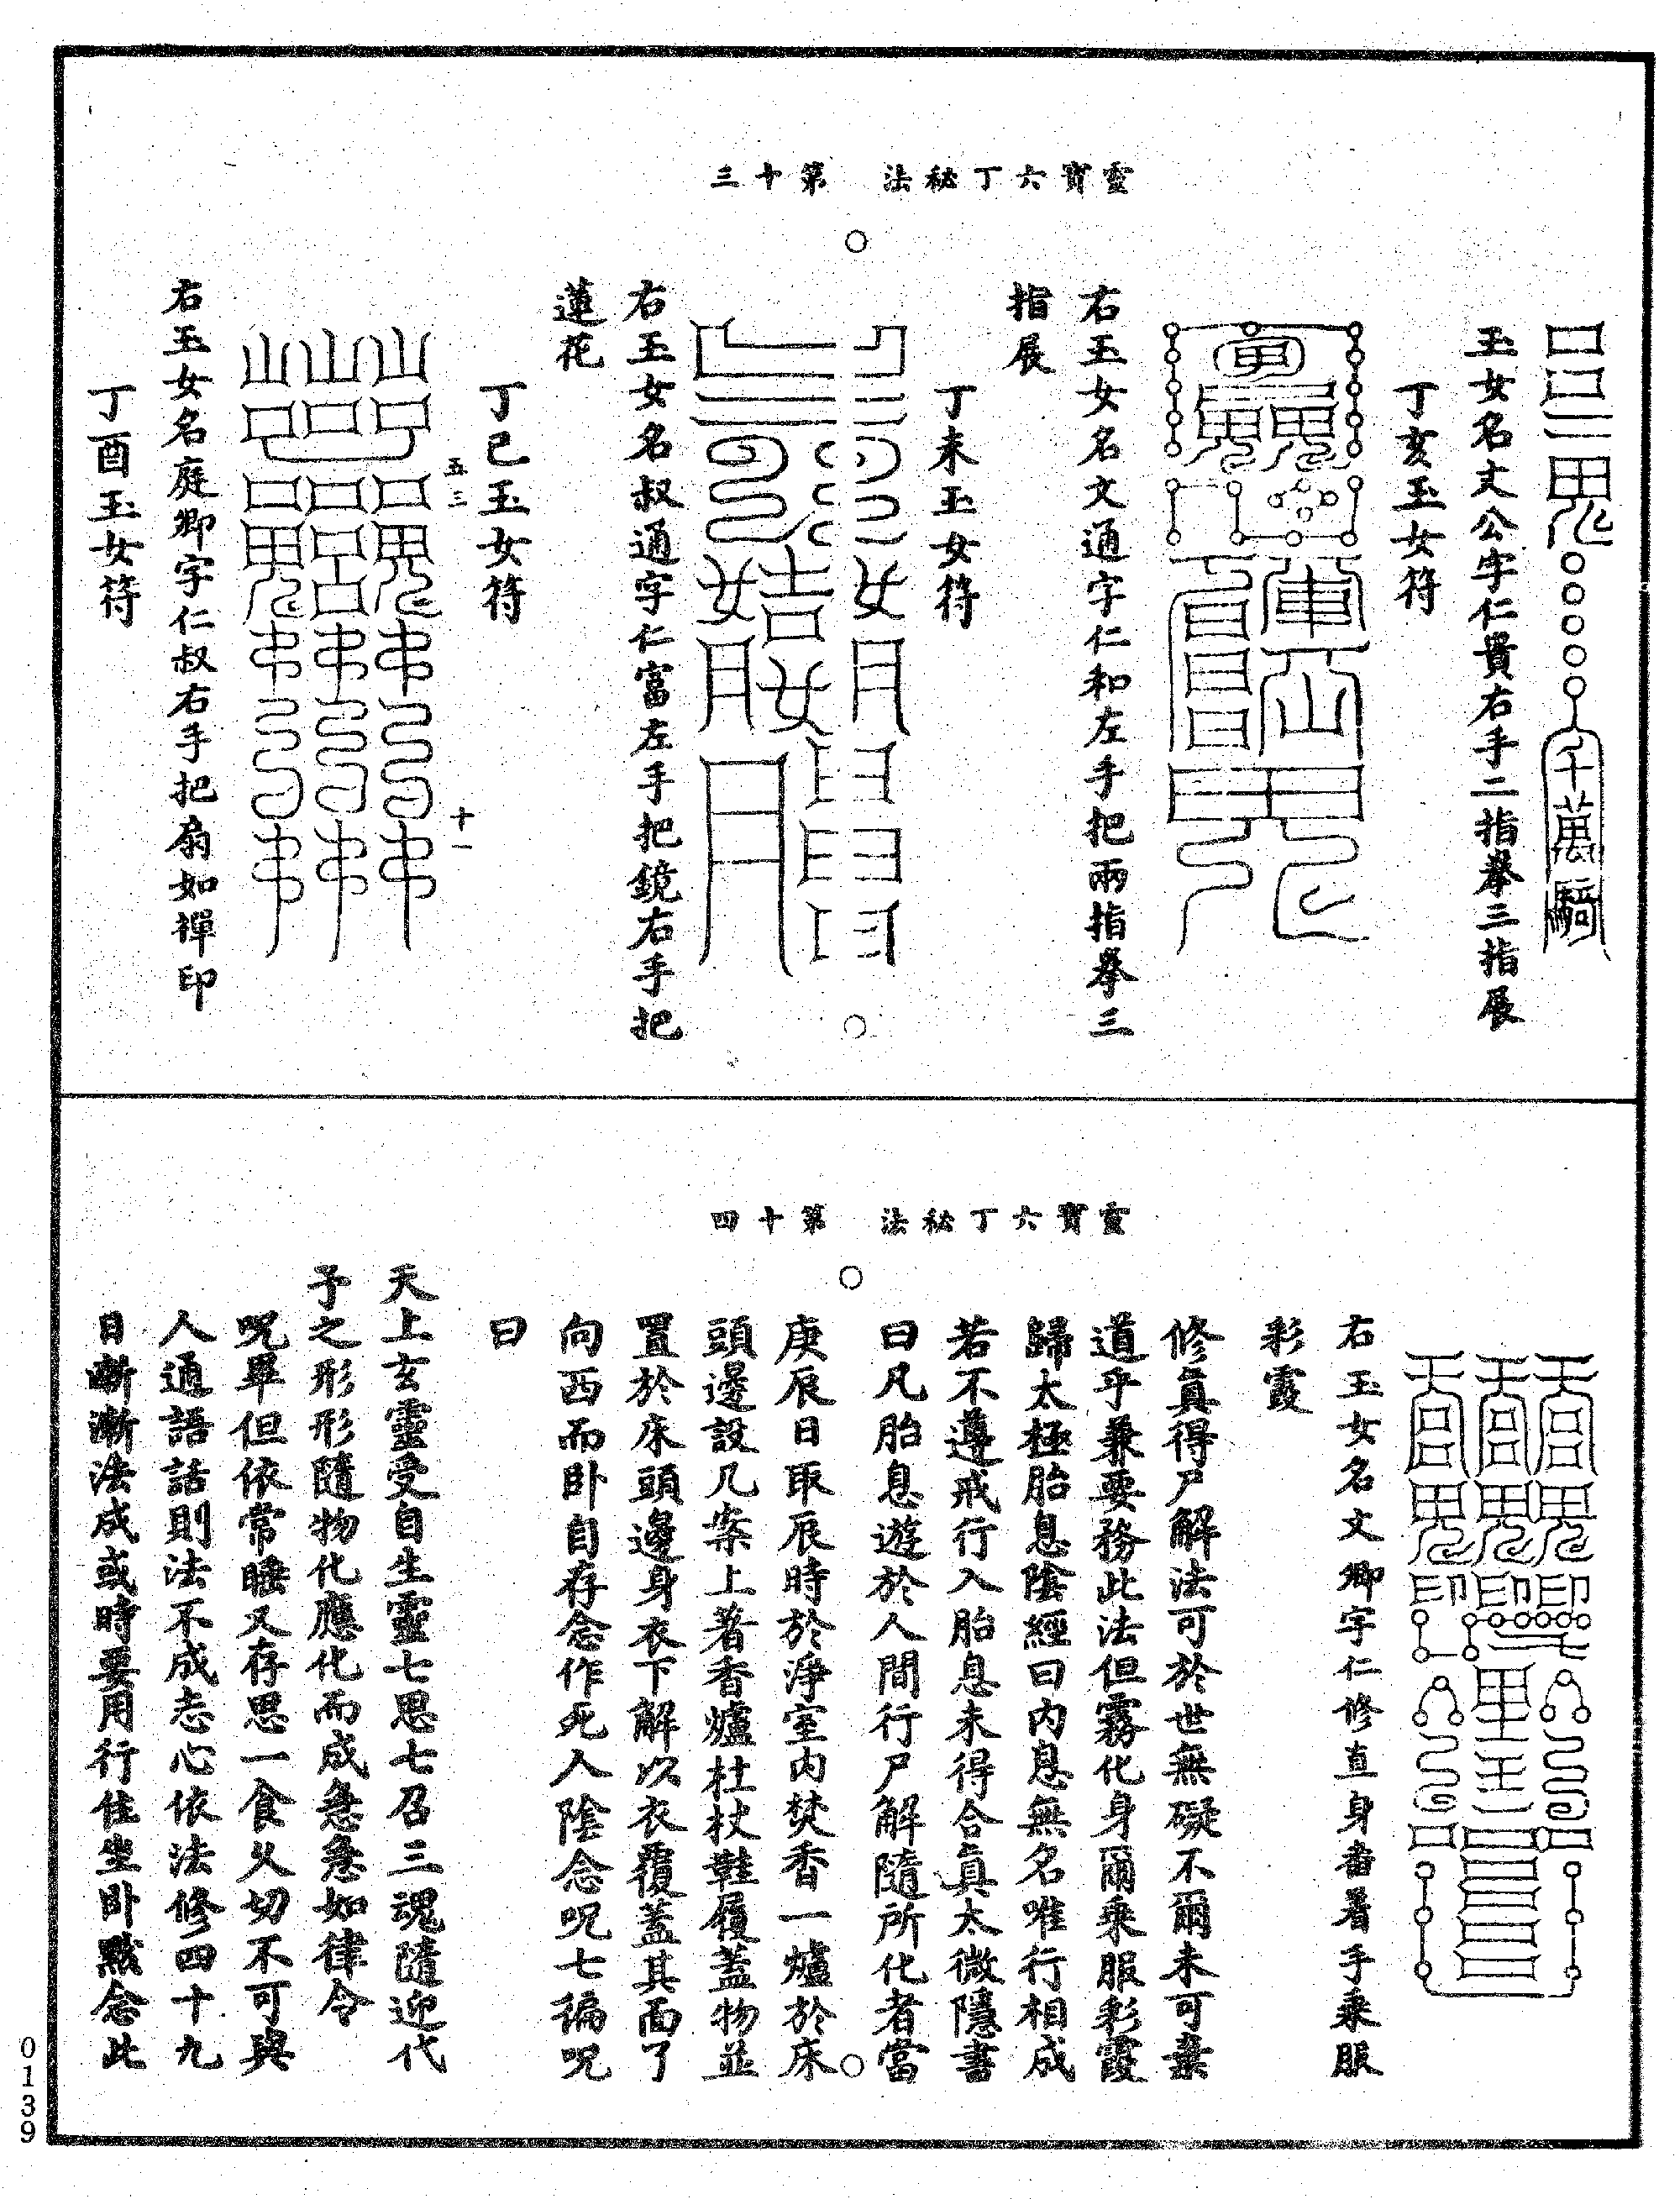 靈寶六丁秘法　第十三
千萬騎
玉女名丈公字仁貴右手二指拳三指展
丁亥玉女符
右玉女名文通字仁和左手把兩指拳三
指展
丁未玉女符
右玉女名叔通字仁富左手把鏡右手把
蓮花
丁巳玉女符
五三
十一
右玉女名庭卿字仁叔右手把扇如禪印
丁酉玉女符
靈寶六丁秘法　第十四
右玉女名文卿字仁修直身畨著手乘服
彩霞
修真得尸解法可於世無礙不爾未可棄
道乎兼要務此法但霧化身爾乘服彩霞
歸太極胎息陰經曰内息無名唯行相成
若不遵戒行入胎息未得合真太微隱書
曰凡胎息遊於人間行尸解隨所化者當
庚辰日取辰時於淨室内焚香一爐於床
頭邊設几案上著香爐杜杖鞋履蓋物並
置於床頭邊身衣下解以衣覆蓋其面了
向西而卧自存念作死人陰念呪七徧呪
曰
天上玄靈受自生靈七思七召三魂隨迎代
予之形形隨物化應化而成急急如律令
呪畢但依常睡又存思一食乆切不可與
人通語話則法不成志心依法修四十九
日漸漸法成或時要用行住坐卧默念此
0139